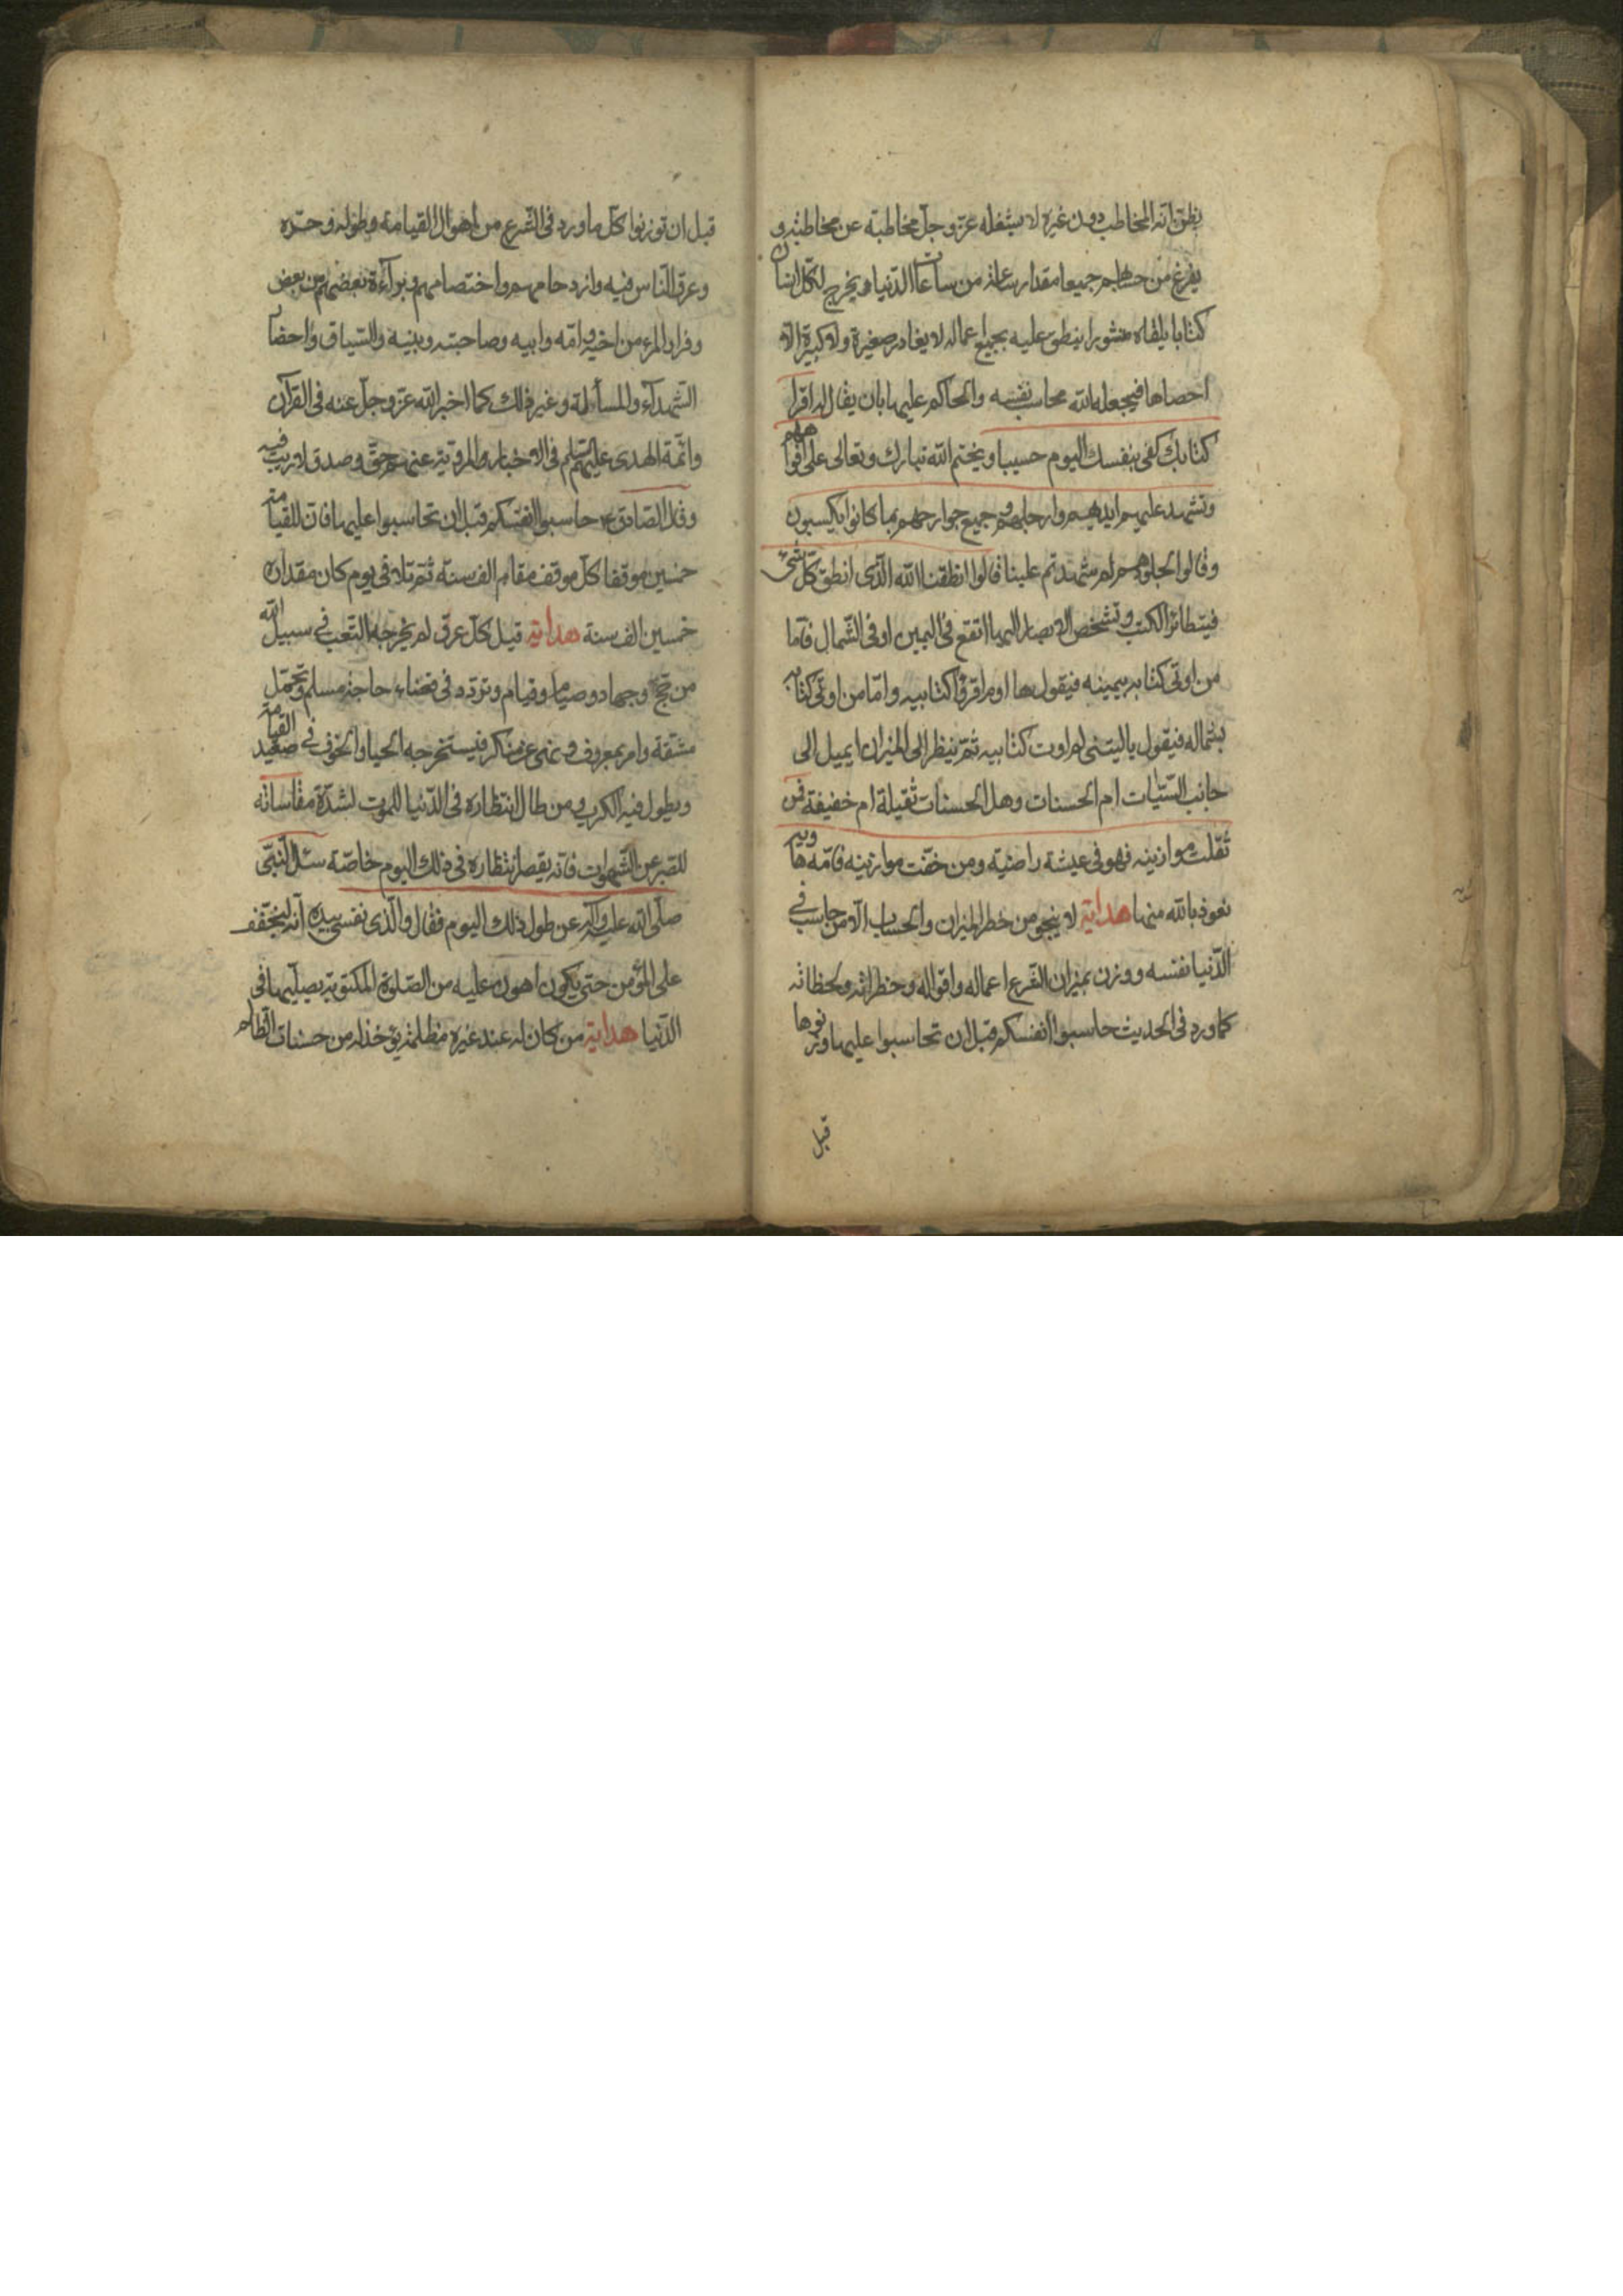 يظن انه المخاطب دون غيره لا يشغله عز وجل مخاطبة عن مخاطبة و
يفرغ من حسابهم جميعا مقدار ساعة من ساعات الدنيا ويخرج لكل انسان
كتابا يلقاه منشورا ينطق عليه بجميع اعماله لا يغادر صغيرة ولا كبيرة الا
احصاها فيجعله الله محاسب نفسه والحاكم عليها بان يقال له اقرأ
كتابك كفى بنفسك اليوم حسيبا ويختم الله تبارك وتعالى على افواههم
وتشهد عليهم ايديهم وارجلهم وجميع جوارحهم بما كانوا يكسبون
وقالوا لجلودهم لم شهدتم علينا قالوا انطقنا الله الذى انطق كل شئ
فيتطائر الكتب وتشخص الابصار اليها اتقع فى اليمين او فى الشمال فاما
من اوتى كتابه بيمينه فيقول هاؤم اقرؤا كتابيه واما من اوتى كتابه
بشماله فيقول يا ليتنى لم اوت كتابيه ثم ينظر الى الميزان ايميل الى
جانب السيئات ام الحسنات وهل الحسنات ثقيلة ام خفيفة فمن
ثقلت موازينه فهو فى عيشة راضية ومن خفت موازينه فامه هاوية
نعوذ بالله منها هداية لا ينجو من خطر الميزان والحساب الا من حاسب فى
الدنيا نفسه ووزن بميزان الشرع اعماله واقواله وخطراته ولحظاته
كما ورد فى الحديث حاسبوا انفسكم قبل ان تحاسبوا عليها وزنوها
قبل
قبل ان توزنوا كل ما ورد فى الشرع من اهوال القيامة وطوله وحره
وعرق الناس فيه وازدحامهم واختصامهم وبراءة بعضهم من بعض
وفرار المرء من اخيه وامه وابيه وصاحبته وبنيه والسياق واحضار
الشهداء والمسألة وغير ذلك كما اخبر الله عز وجل عنه فى القرآن
وائمة الهدى عليهم السلم فى الاخبار المروية عنهم حق وصدق لا ريب فيه
وقال الصادق ع حاسبوا انفسكم قبل ان تحاسبوا عليها فان للقيامة
خمسين موقفا كل موقف مقام الف سنة ثم تلا فى يوم كان مقداره
خمسين الف سنة هداية قيل كل عرق لم يخرجه التعب فى سبيل الله
من حج وجهاد وصيام وقيام وتردد فى قضاء حاجة مسلم وتحمل
مشقة وامر بمعروف ونهى عن منكر فيستخرجه الحيا والخوف فى صعيد القيامة
ويطول فيه الكرب ومن طال انتظاره فى الدنيا للموت لشدة مقاساته
للصبر عن الشهوات فانه يقصر انتظاره فى ذلك اليوم خاصة سئل النبى
صلى الله عليه وآله عن طول ذلك اليوم فقال والذى نفسى بيده انه ليخفف
على المؤمن حتى يكون اهون عليه من الصلوة المكتوبة يصليها فى
الدنيا هداية من كان له عند غيره مظلمة يؤخذ له من حسنات الظالم